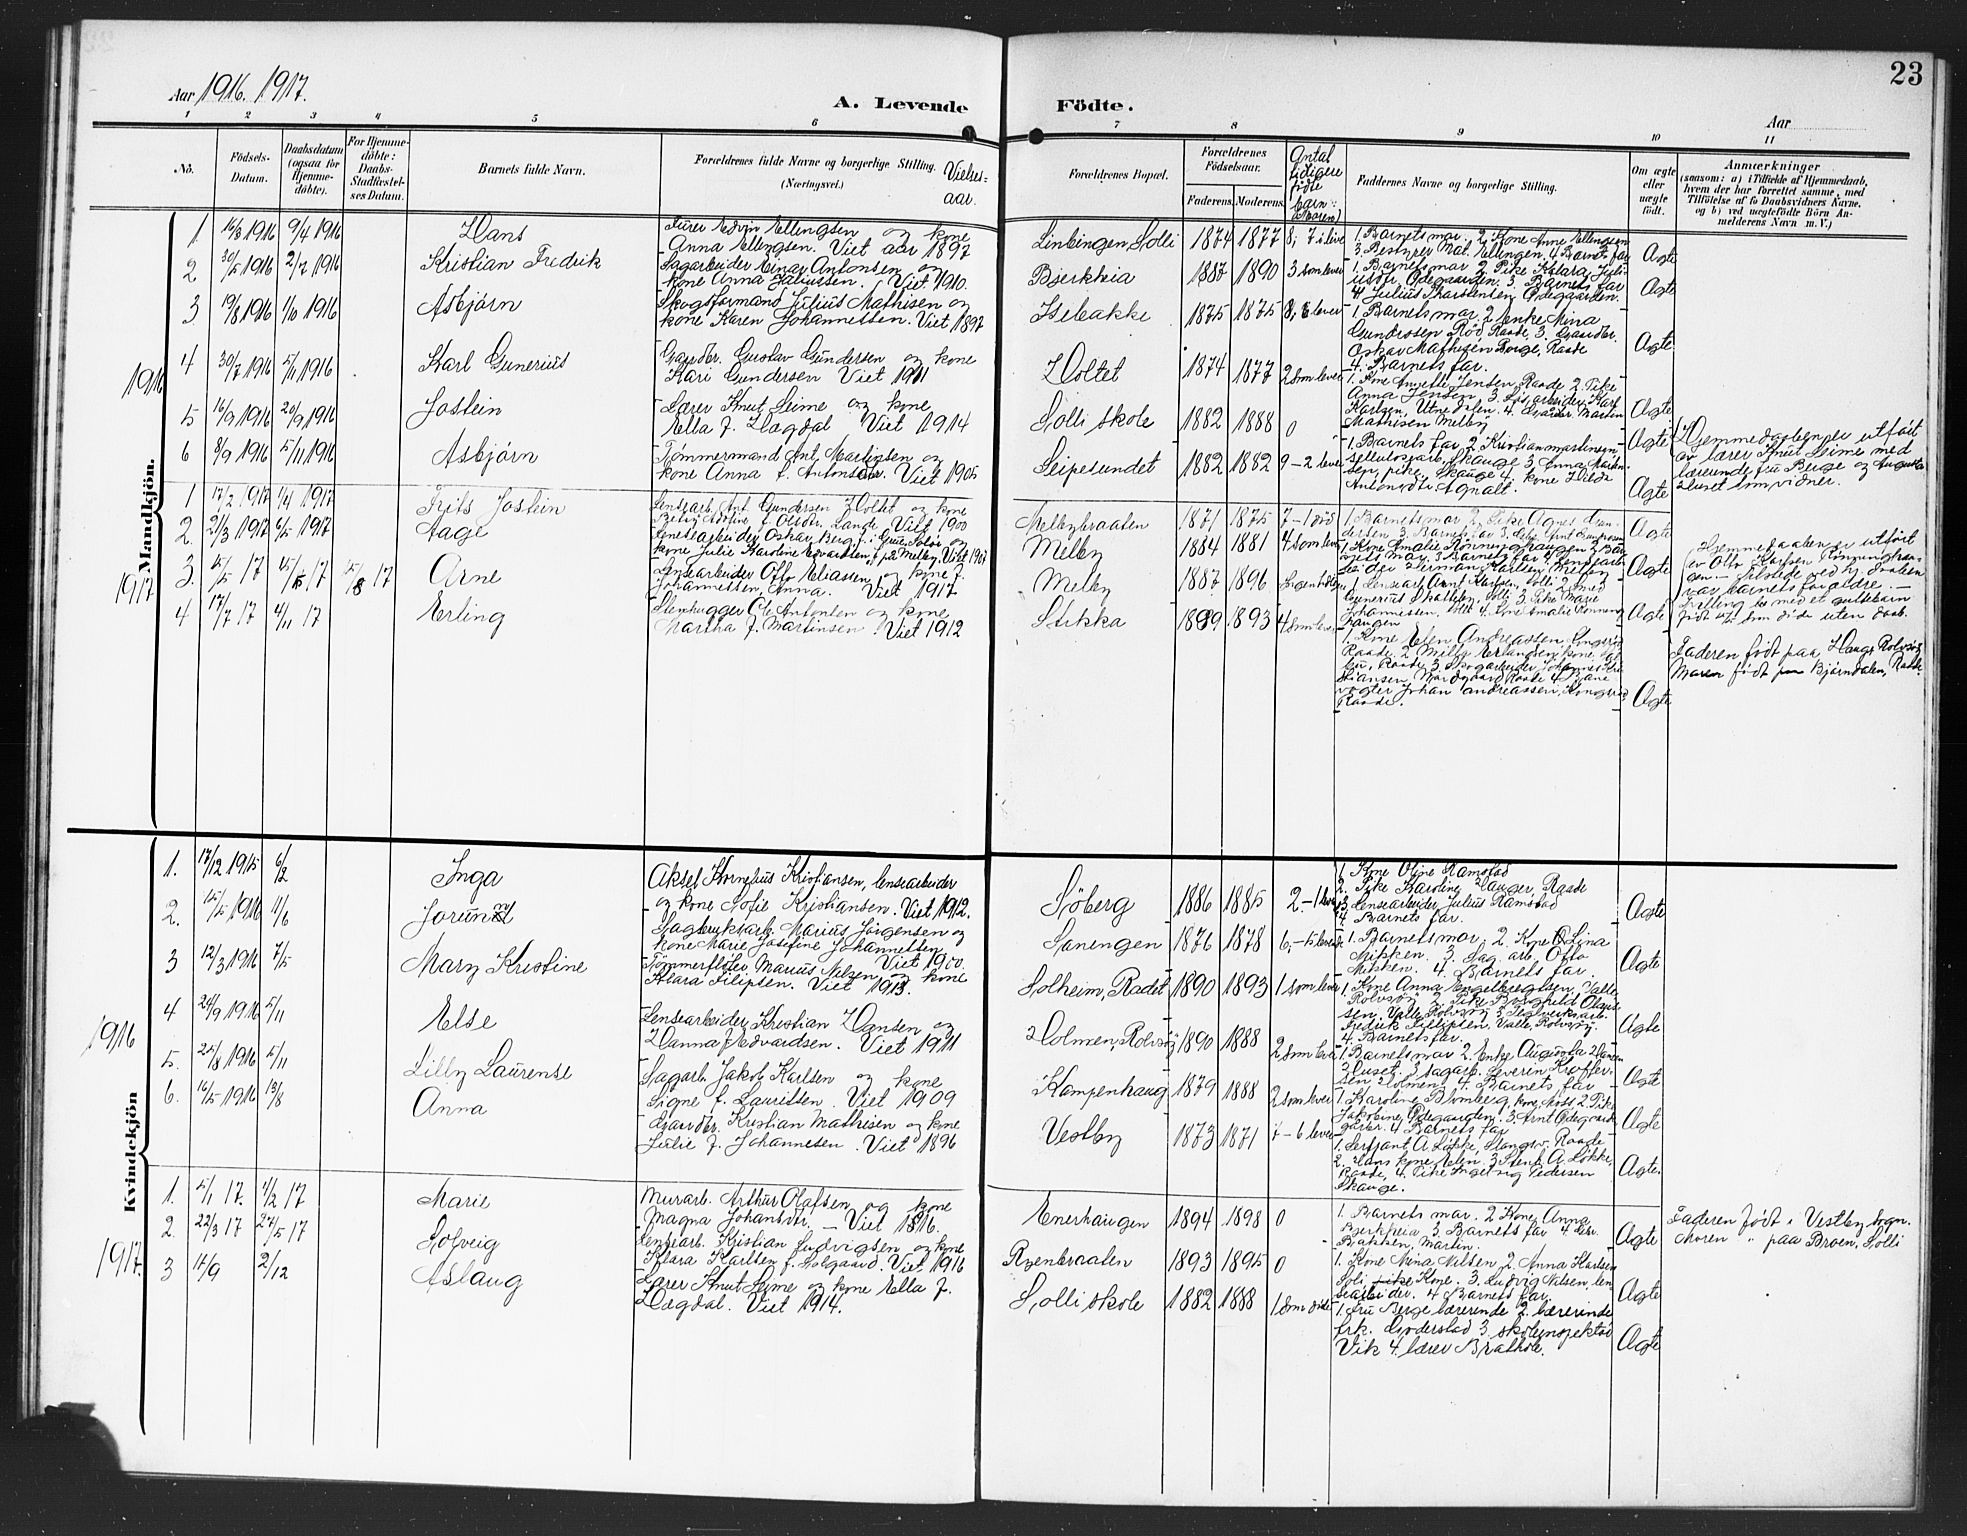 23
Aar 1916. 1917.
A. Levende Födte.
Aar
1 2 3 4 5 6 7 8 9 10 11
No.
Födsels-Datum.
Daabsdatum (ogsaa for Hjemme-döbte).
For Hjemme-döbte: Daabs-Stadfæstel-ses Datum.
Barnets fulde Navn.
Forældrenes fulde Navne og borgerlige Stilling. (Næringsvei.)
Vielses-aar.
Forældrenes Bopæl.
Forældrenes Födselsaar.
Faderens. Moderens.
Antal tidligere fødte barn (Moren)
Faddernes Navne og borgerlige Stilling.
Om ægte eller uægte födt.
Anmærkninger
(saasom: a) i Tilfælde af Hjemmedaab, hvem der har forrettet samme, med Tilföielse af to Daabsvidners Navne, og b) ved uægtefödte Börn An-melderens Navn m. V.)
Mandkjön.
1916
1. 16/3 1916 9/4 1916 Hans
Anna Ellingsen. Viet aar 1897
Solli 1874 1877 8, 7 i live
1. Barnets mor. 2. Kone Anne Ellingsen
4. Barnets far
Ægte
2 30/5 1916 2/7 1916 Kristian Fredrik
Sagarbeider Einar Antonsen og
kone Anna Juliussen. Viet 1910.
Bjerkheia 1887 1890 3 som lever
1. Barnets mor 2. Pike Klara
Ødegaarden. 3. Barnets far
4. Julius Thorstensen Ødegaarden.
Ægte
3 19/8 1916 1/10 1916 Asbjørn
Skogsformand Julius Mathisen og
kone Karen Johannessen. Viet 1897
Isebakke 1875 1875 8, 6 lever
1. Barnets mor 2. Enke Mina
Gundersen Rød Raade 3. Gaardbr.
Oskar Mathisen Borge, Raade
4. Barnets far.
Ægte
4 30/7 1916 5/11 1916 Karl Gunerius
Gaardbr. Gustav Gundersen og kone
Kari Gundersen Viet 1911
Holtet 1874 1877 2 som lever
1. Kone Anette Jensen, Raade 2. Pike
Anna Jensen 3. Karl
Karlsen, 4. Gaardbr. Martin
Mathisen Melby
Ægte
5 16/9 1916 20/9 1916 Jostein
Lærer Knut Seime og kone
Ella f. Hægdal Viet 1914
Solli skole 1882 1888 0
1. Barnets far 2. Kristian Martinsen
Ægte
Hjemmedaaben er utført
av lærer Knut Seime med
lærerinde fru Berge og Augusta
Huset som vidner.
6 8/9 1916 5/11 1916 Asbjørn
Tømmermand Ant. Martinsen og
kone Anna f. Antonsen. Viet 1905
Seipesundet 1882 1882 9 - 2 lever
Skauge 3. Emma Martin-
sen, pike, Skauge 4. kone Hilda
Ægte
1917
1 17/2 1917 1/4 1917 Frits Jostein
Lensearb. Ant. Gundersen Holtet og kone
Viet 1900
Melbybraaten 1871 1875 7 - 1 død
1. Barnets mor 2. Pike Agnes
Ægte
2. 21/3 1917 6/5 1917 Aage
Lensearbeider Oskar Berg f. i Grue Solør og
kone Julie Karoline Edvardsen, f. paa Melby. Viet 1907
Melby 1884 1881 4 som lever
1. Kone Amalie Rønninghaugen 2. Bar-
nets mor 3. Barnets far 4.
Herman Karlsen Melby
Ægte
3. 15/5 17 15/5 17 5/8 17 Arne
Lensearbeider Otto Eliassen og kone f.
Johannessen, Anna. Viet 1917
Melby 1887 1896
1. Lensearb. Arnt Karlsen, Solli 2. Smed
Gunerius Skattebøl, Solli 3. Pike Marie
Johannessen, 4. Kone Amalie Rønning-
haugen
Ægte
Hjemmedaaben er utført
av Otto Karlsen Rønninghau-
gen - tilstede ved hj. daaben
var barnets forældre -
Tvilling med et guttebarn
født 15/5 som døde uten daab.
4 17/7 17 4/11 17 Erling
Stenhugger Ole Antonsen og kone
Martha f. Martinsen. Viet 1912
Stikka 1889 1893 4 som lever
1. Kone Elen Andreassen, Kongsrød
Raade. 2. Milly Erlandsen kone
Raade 3. Skogarbeider Johannes Kris-
tiansen, Raade 4. Bane-
vogter Johan Andreassen, Kongsrød
Raade.
Ægte
Faderen født paa Hauge Rolvsøy
Moren født paa Bjørndalen, Raade.
Kvindekjön
1916
1. 17/12 1915 6/2 Inga
Aksel Kornelius Kristiansen, lensearbeider
og kone Sofie Kristiansen. Viet 1912.
Søberg 1886 1885 2 - 1 lever
1. Kone Oline Ramstad
2. Pike Karoline Hauger, Raade
3. Lensearbeider Julius Ramstad
4. Barnets far.
Ægte
2. 15/5 1916 11/6 Jorunn
Sagbruksarb. Marius Jørgensen og
kone Marie Josefine Johannessen
Viet 1900.
Saningen 1876 1878 6, - 5 levende
1. Barnets mor, 2. Kone Lina
Mikken. 3. Sag. arb. Otto
Mikken. 4. Barnets far.
Ægte
3 12/3 1916 7/5 Mary Kristine
Tømmerfløter Marius Nilsen og kone
Klara Filipsen. Viet 1913.
Solheim, Raade 1890 1893 1 som lever
1. Kone Anna Engelbregtsen, Valle
Rolvsøy 2. Pike Borghild Olaus-
sen, Valle, Rolvsøy 3. Teglverksarb.
Fredrik Filipsen, Valle, Rolvsøy.
4. Barnets far.
Ægte
4 24/9 1916 5/11 Else
Lensearbeider Kristian Hansen og
Hanna f. Edvardsen. Viet 1911
Holmen, Rolvsøy 1890 1888 2 som lever
1. Barnets mor 2. Enke Augusta Hansen
Huset. 3. sagarb. Severin Kristof-
sen Holmen 4. Barnets far
Ægte
5. 25/8 1916 5/11 Lilly Laurense
Sagarb. Jakob Karlsen og kone
Signe f. Lauritsen. Viet 1909
Kampenhaug 1879 1888 2 som lever
1. Karoline Blomberg, kone, Moss 2. Pike
Jakobine Ødegaarden. 3. Arnt Ødegaard-
4. Barnets far
Ægte
6. 16/5 1916 13/8 Anna
Gaardbr. Kristian Mathisen og kone
Julie f. Johannesen. Viet 1896
Vestby 1873 1871 7 - 6 lever
1. Sersjant A. Løkke, Slangsv. Raade
2. Hans kone Elen, 3. Stenh. A. Løkke,
Raade, 4. Pike Ingeborg Pedersen
Skauge.
Ægte.
1917.
1. 5/1 17. 4/2 17 Marie
Murarb. Arthur Olafsen og kone
Magna Johansdtr. - Viet 1916.
Enerhaugen 1894 1898 0
1. Barnets mor. 2. Kone Anna
Bjerkheia 3. Barnets far 4.
Bakken, Martin.
Ægte
Faderen født i Vestby sogn.
Moren " paa Broen, Solli
2. 22/3 17 27/5 17 Solveig
Lensearb. Kristian Ludvigsen og kone
Klara Karlsen f. Solgaard. Viet 1916
Ryenbraaten 1893 1895 0
1. Kone Mina Nilsen 2. Anna Karlsen
Soli pike Kone. 3. Ludvig Nilsen, len-
searbeider. 4. Barnets far.
Ægte
3 14/9 2/12 Aslaug
Lærer Knut Seime og kone Ella f.
Hægdal. Viet 1914.
Solli skole 1882 1888 1 som døde
1. Fru Berge lærerinde 2. lærerinde
frk. Goderstad 3. skoleinspektør
Vik 4. lærer Brathole.
Ægte